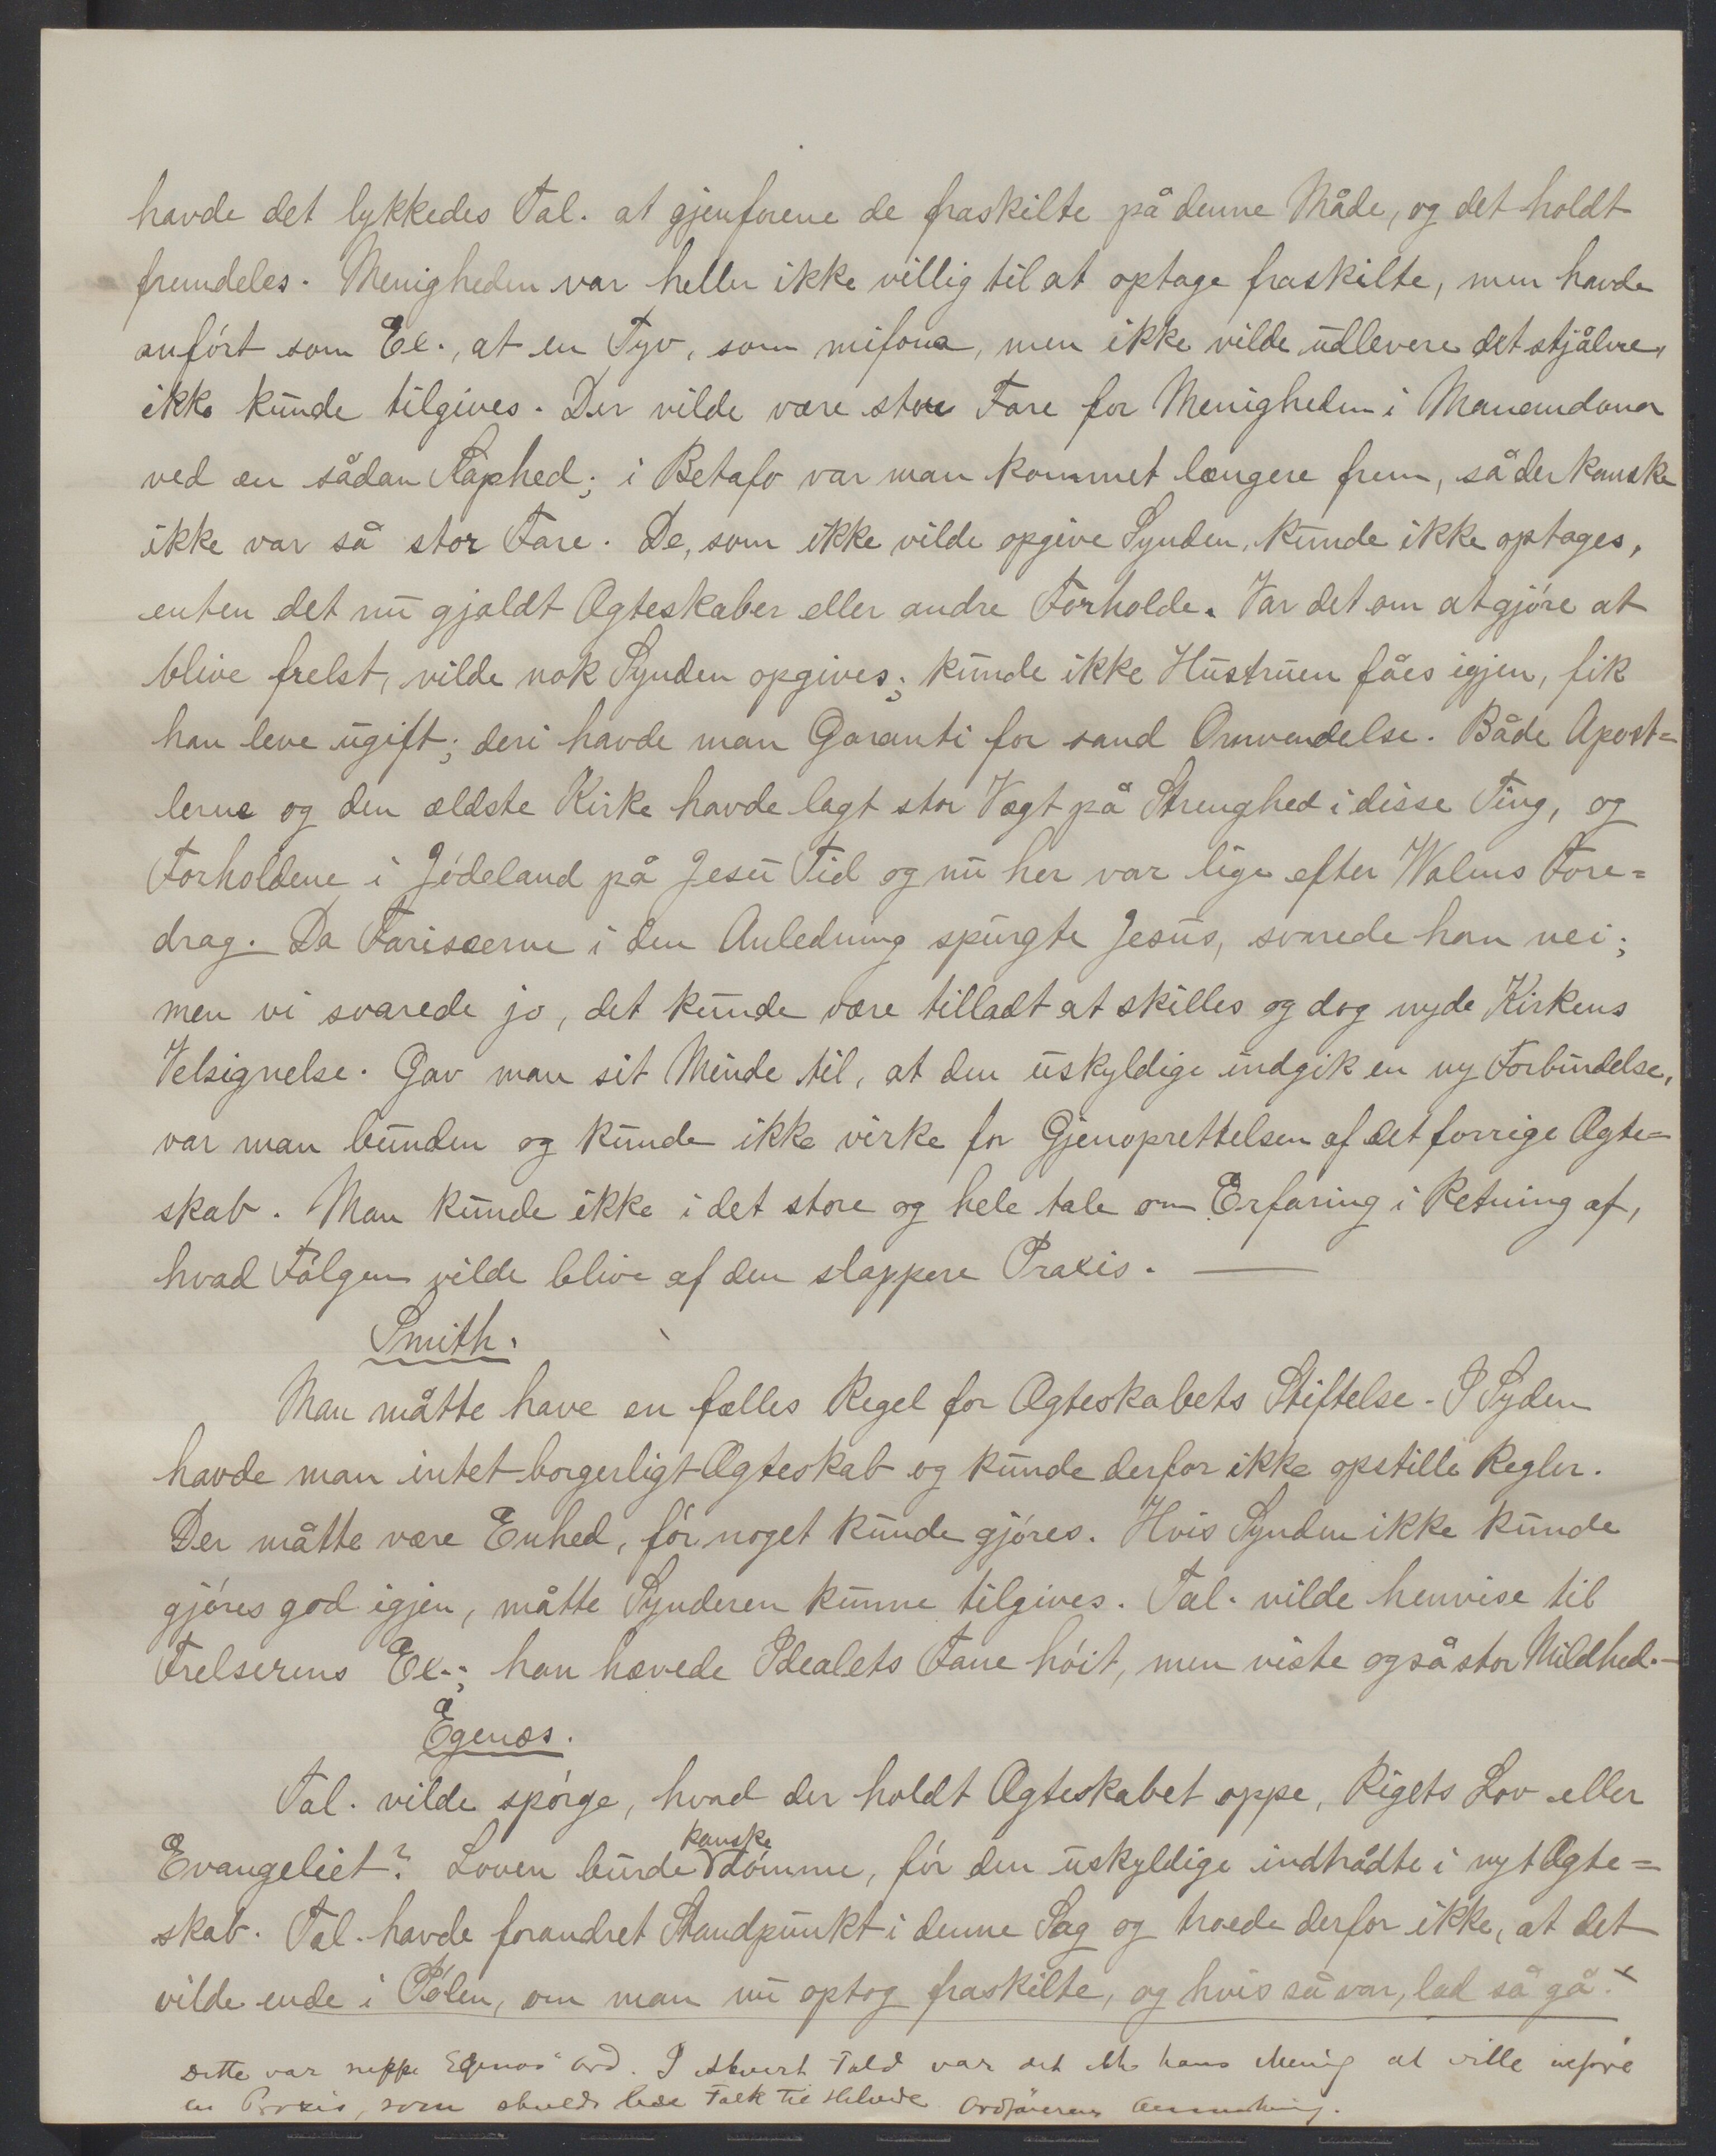 havde det lykkedes Tal. at gjenforene de fraskilte på denne Måde, og det holdt
fremdeles. Menigheden var heller ikke villig til at optage fraskilte, men havde
anført som Ex., at en Tyv, som mifona, men ikke vilde udlevere det stjålne,
ikke kunde tilgives. Der vilde være store Fare for Menigheden i Manandona
ved en sådan Slaphed; i Betafo var man kommet længere frem, så der kanske
ikke var så stor Fare. De, som ikke vilde opgive Synden, kunde ikke optages,
enten det nu gjaldt Ægteskaber eller andre Forholde. Var det om at gjøre at
blive frelst, vilde nok Synden opgives; kunde ikke Hustruen fåes igjen, fik
han leve ugift; deri havde man Garanti for sand Omvendelse. Både Apost=
lerne og den ældste Kirke havde lagt stor Vægt på Strenghed i disse Ting, og
Forholdene i Jødeland på Jesu Tid og nu her var lige efter Walens Fore=
drag. Da Farisæerne i den Anledning spurgte Jesus, svarede han nei;
men vi svarede jo, det kunde være tilladt at skilles og dog nyde Kirkens
Velsignelse. Gav man sit Minde til, at den uskyldige indgik en ny Forbindelse,
var man bunden og kunde ikke virke for Gjenoprettelsen af det forrige Ægte=
skab. Man kunde ikke i det store og hele tale om Erfaring i Retning af,
hvad Følgen vilde blive af den slappere Praxis. —
Smith.
Man måtte have en fælles Regel for Ægteskabets Stiftelse. I Syden
havde man intet borgerligt Ægteskab og kunde derfor ikke opstille Regler.
Der måtte være Enhed, før noget kunde gjøres. Hvis Synden ikke kunde
gjøres god igjen, måtte Synderen kunne tilgives. Tal. vilde henvise til
Frelserens Ex.; han hævede Idealets Fane høit, men viste også stor Mildhed. —
Egenæs.
Tal. vilde spørge, hvad der holdt Ægteskabet oppe, Rigets Lov eller
Evangeliet? Loven burde kanske dømme, før den uskyldige indtrådte i nyt Ægte=
skab. Tal. havde forandret Standpunkt i denne Sag og troede derfor ikke, at det
vilde ende i Pølen, om man nu optog fraskilte, og hvis så var, lad så gå. x
Dette var neppe Egenæs' Ord. I hvert Fald var det ikke hans Mening at ville indføre
en Praxis, som skulde lede Folk til Helvede. Ordførerens Anmerkning.